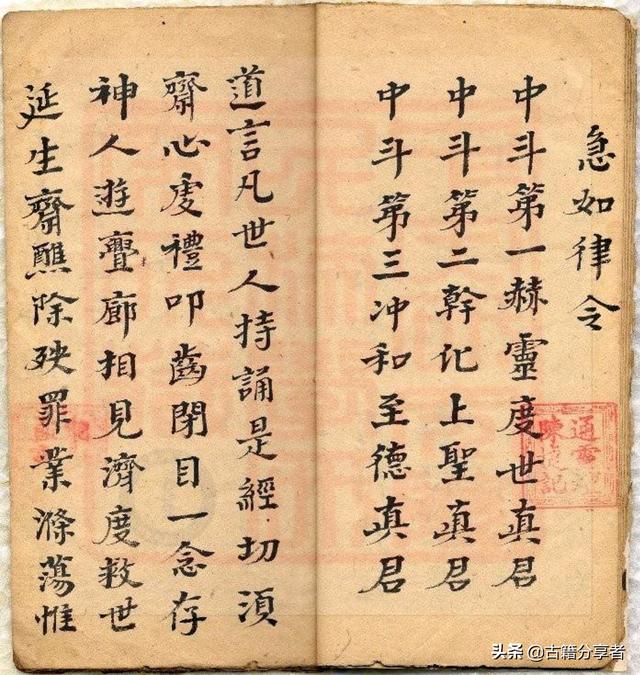 急如律令
中斗第一赫靈度世真君
中斗第二幹化上聖真君
中斗第三冲和至德真君
道言凡世人持誦是經切湏
齋心虔禮叩齒閉目一念存
神人遊廊相見濟度救世
延生齋醮除殃罪業滌蕩惟
通
陳記
头条 @古籍分享者